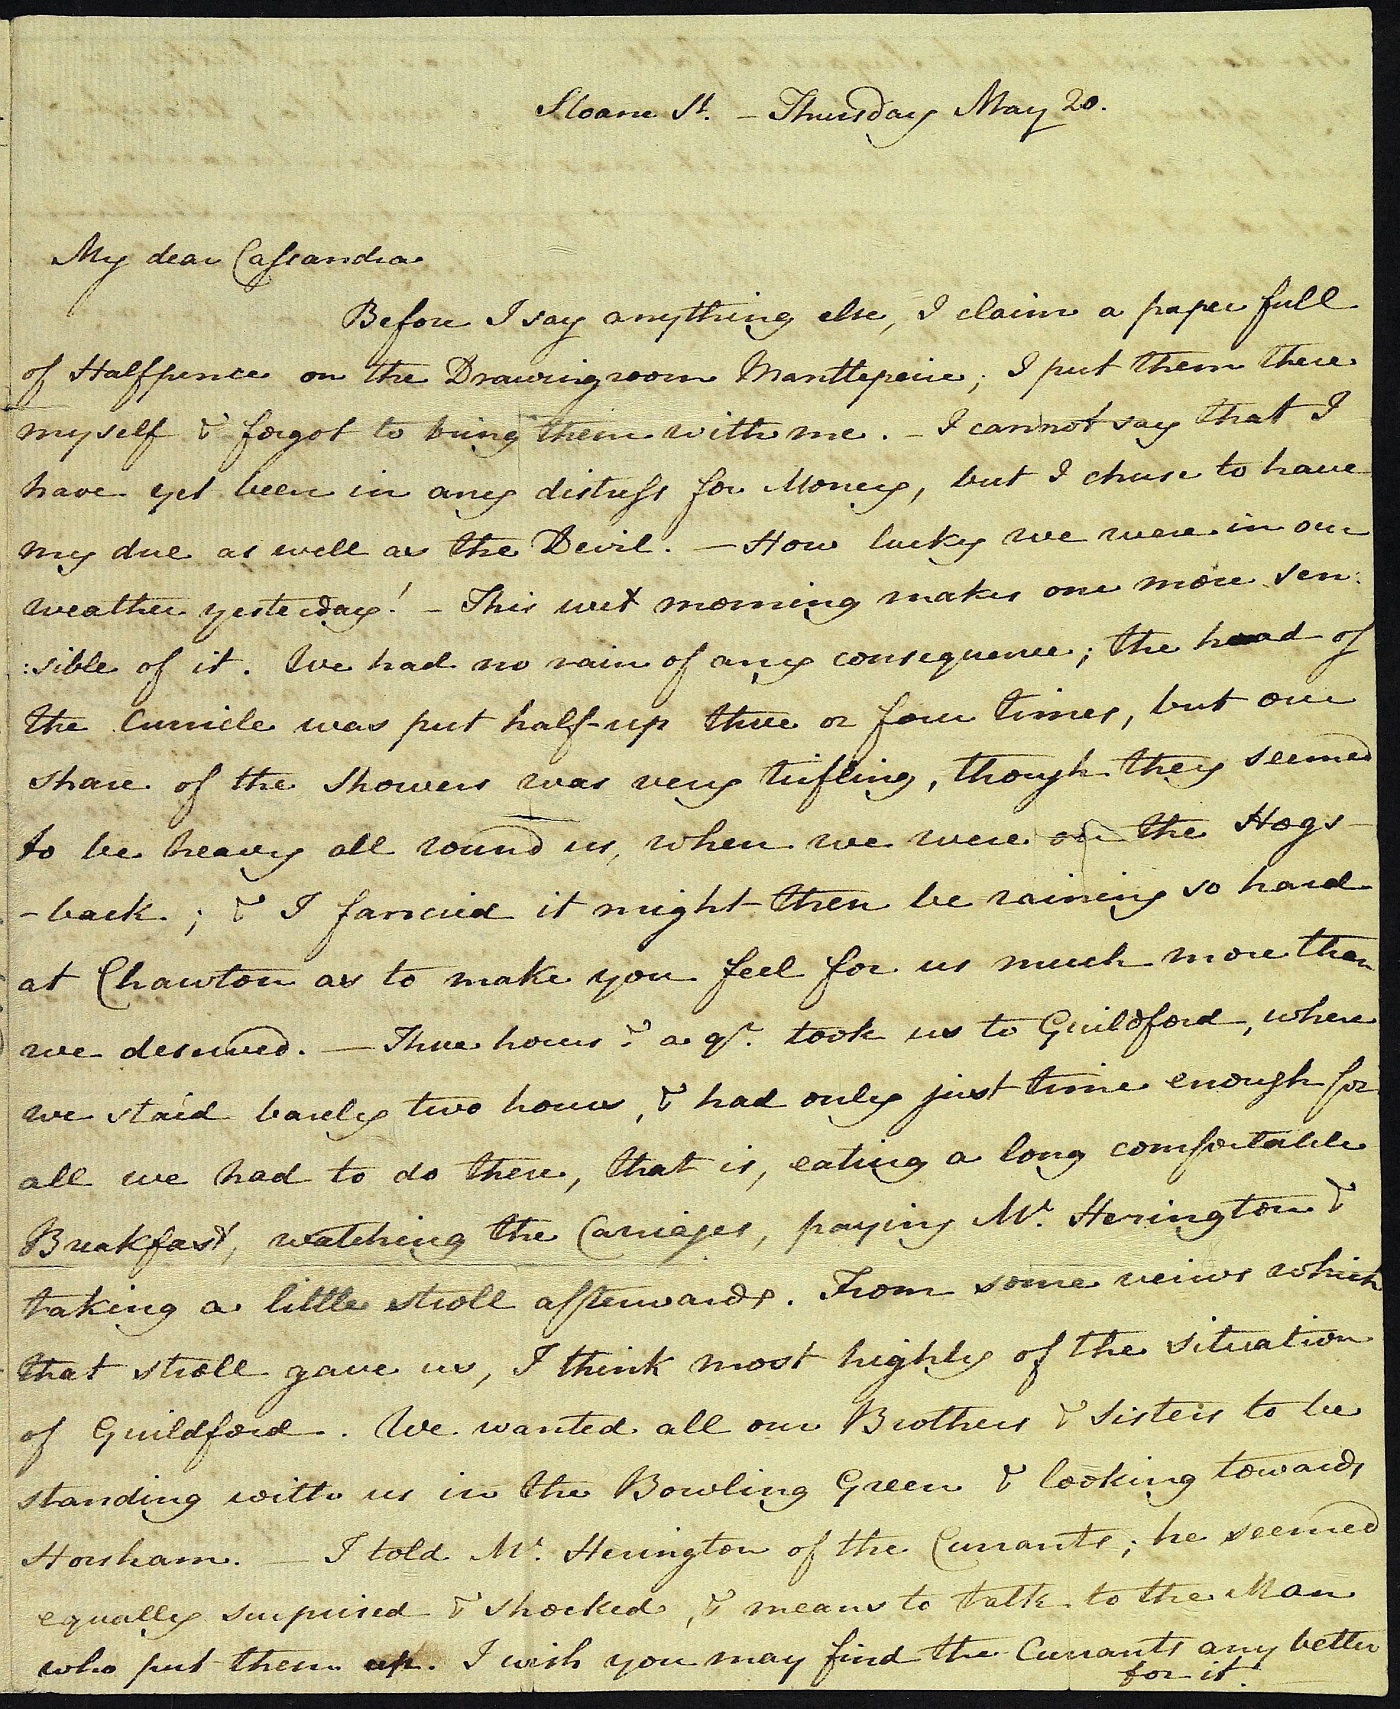 Sloane St. – Thursday May 20.
My dear Cassandra
Before I say anything else, I claim a paper full
of Halfpence on the Drawingroom Mantlepeice; I put them there
myself & forgot to bring them with me. – I cannot say that I
have yet been in any distress for Money, but I chuse to have
my due as well as the Devil. – How lucky we were in our
weather yesterday! – This wet morning makes one more sen:
:sible of it. We had no rain of any consequence; the head of
the Curricle was put half-up three or four times, but our
share of the Showers was very trifling, though they seemed
to be heavy all round us, when we were on the Hogs-
-back; & I fancied it might then be raining so hard
at Chawton as to make you feel for us much more than
we deserved. – Three hours & a qr. took us to Guildford, where
we staid barely two hours, & had only just time enough for
all we had to do there, that is, eating a long comfortable
Breakfast, watching the Carriages, paying Mr. Herington &
taking a little stroll afterwards. From some veiws which
that stroll gave us, I think most highly of the situation
of Guildford. We wanted all our Brothers & Sisters to be
standing with us in the Bowling Green & looking towards
Horsham. – I told Mr. Herington of the Currants; he seemed
equally surprised & shocked, & means to talk to the Man
who put them up. I wish you may find the Currants any better
for it.